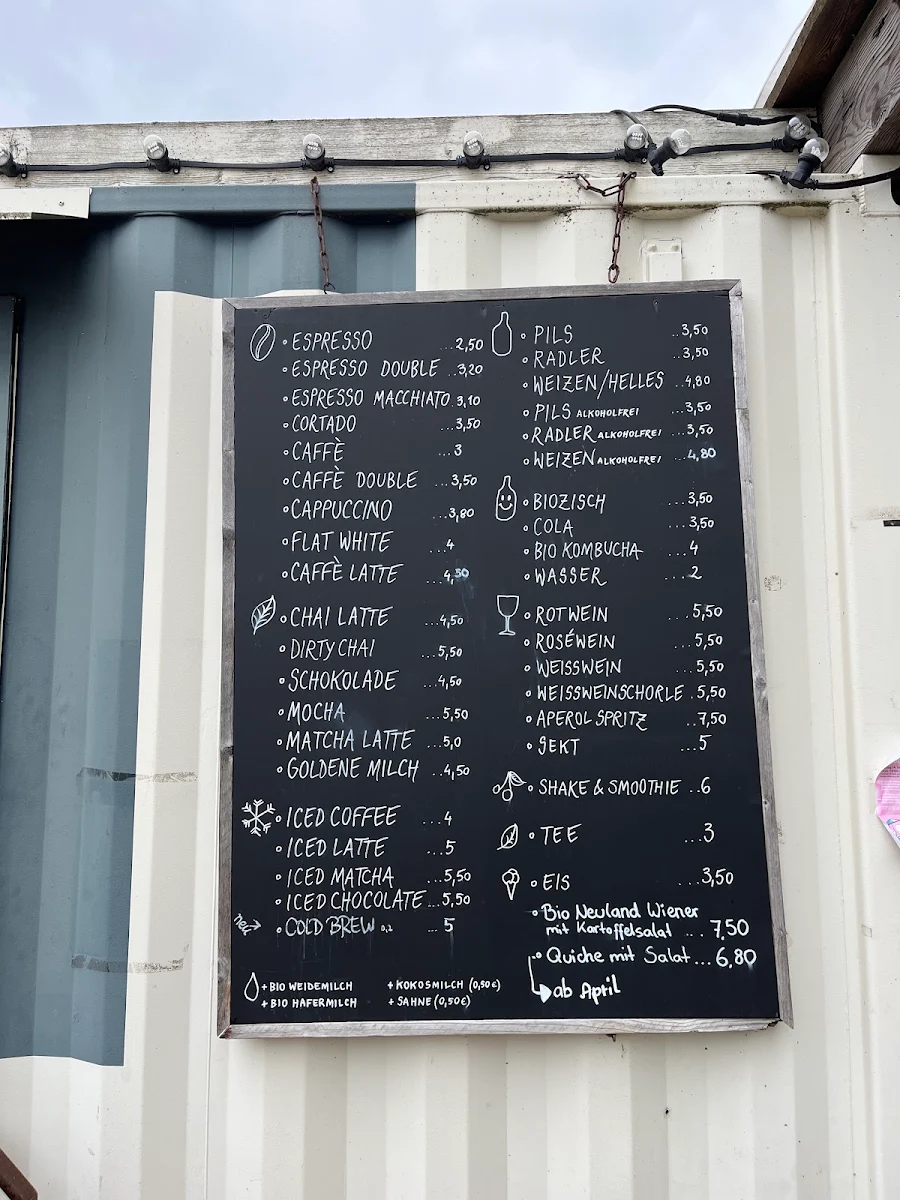 ESPRESSO ...2,50
ESPRESSO DOUBLE ..3,20
ESPRESSO MACCHIATO 3,10
CORTADO ...3,50
CAFFÈ ...3
CAFFÈ DOUBLE ...3,50
CAPPUCCINO ...3,80
FLAT WHITE ...4
CAFFÈ LATTE ...4,50
CHAI LATTE ...4,50
DIRTY CHAI ...5,50
SCHOKOLADE ...4,50
MOCHA ...5,50
MATCHA LATTE ...5,0
GOLDENE MILCH ..4,50
ICED COFFEE ...4
ICED LATTE ...5
ICED MATCHA ...5,50
ICED CHOCOLATE...5,50
neu COLD BREW 0,2 ...5
+ BIO WEIDEMILCH
+ BIO HAFERMILCH
+ KOKOSMILCH (0,50€)
+ SAHNE (0,50€)
PILS ..3,50
RADLER ...3,50
WEIZEN/HELLES ..4,80
PILS ALKOHOLFREI ...3,50
RADLER ALKOHOLFREI ...3,50
WEIZEN ALKOHOLFREI ...4,80
BIOZISCH ...3,50
COLA ...3,50
BIO KOMBUCHA ...4
WASSER ...2
ROTWEIN ...5,50
ROSÉWEIN ...5,50
WEISSWEIN ...5,50
WEISSWEINSCHORLE .5,50
APEROL SPRITZ ..7,50
SEKT ...5
SHAKE & SMOOTHIE ..6
TEE ...3
EIS ...3,50
Bio Neuland Wiener
mit Kartoffelsalat ... 7,50
Quiche mit Salat ... 6,80
ab April